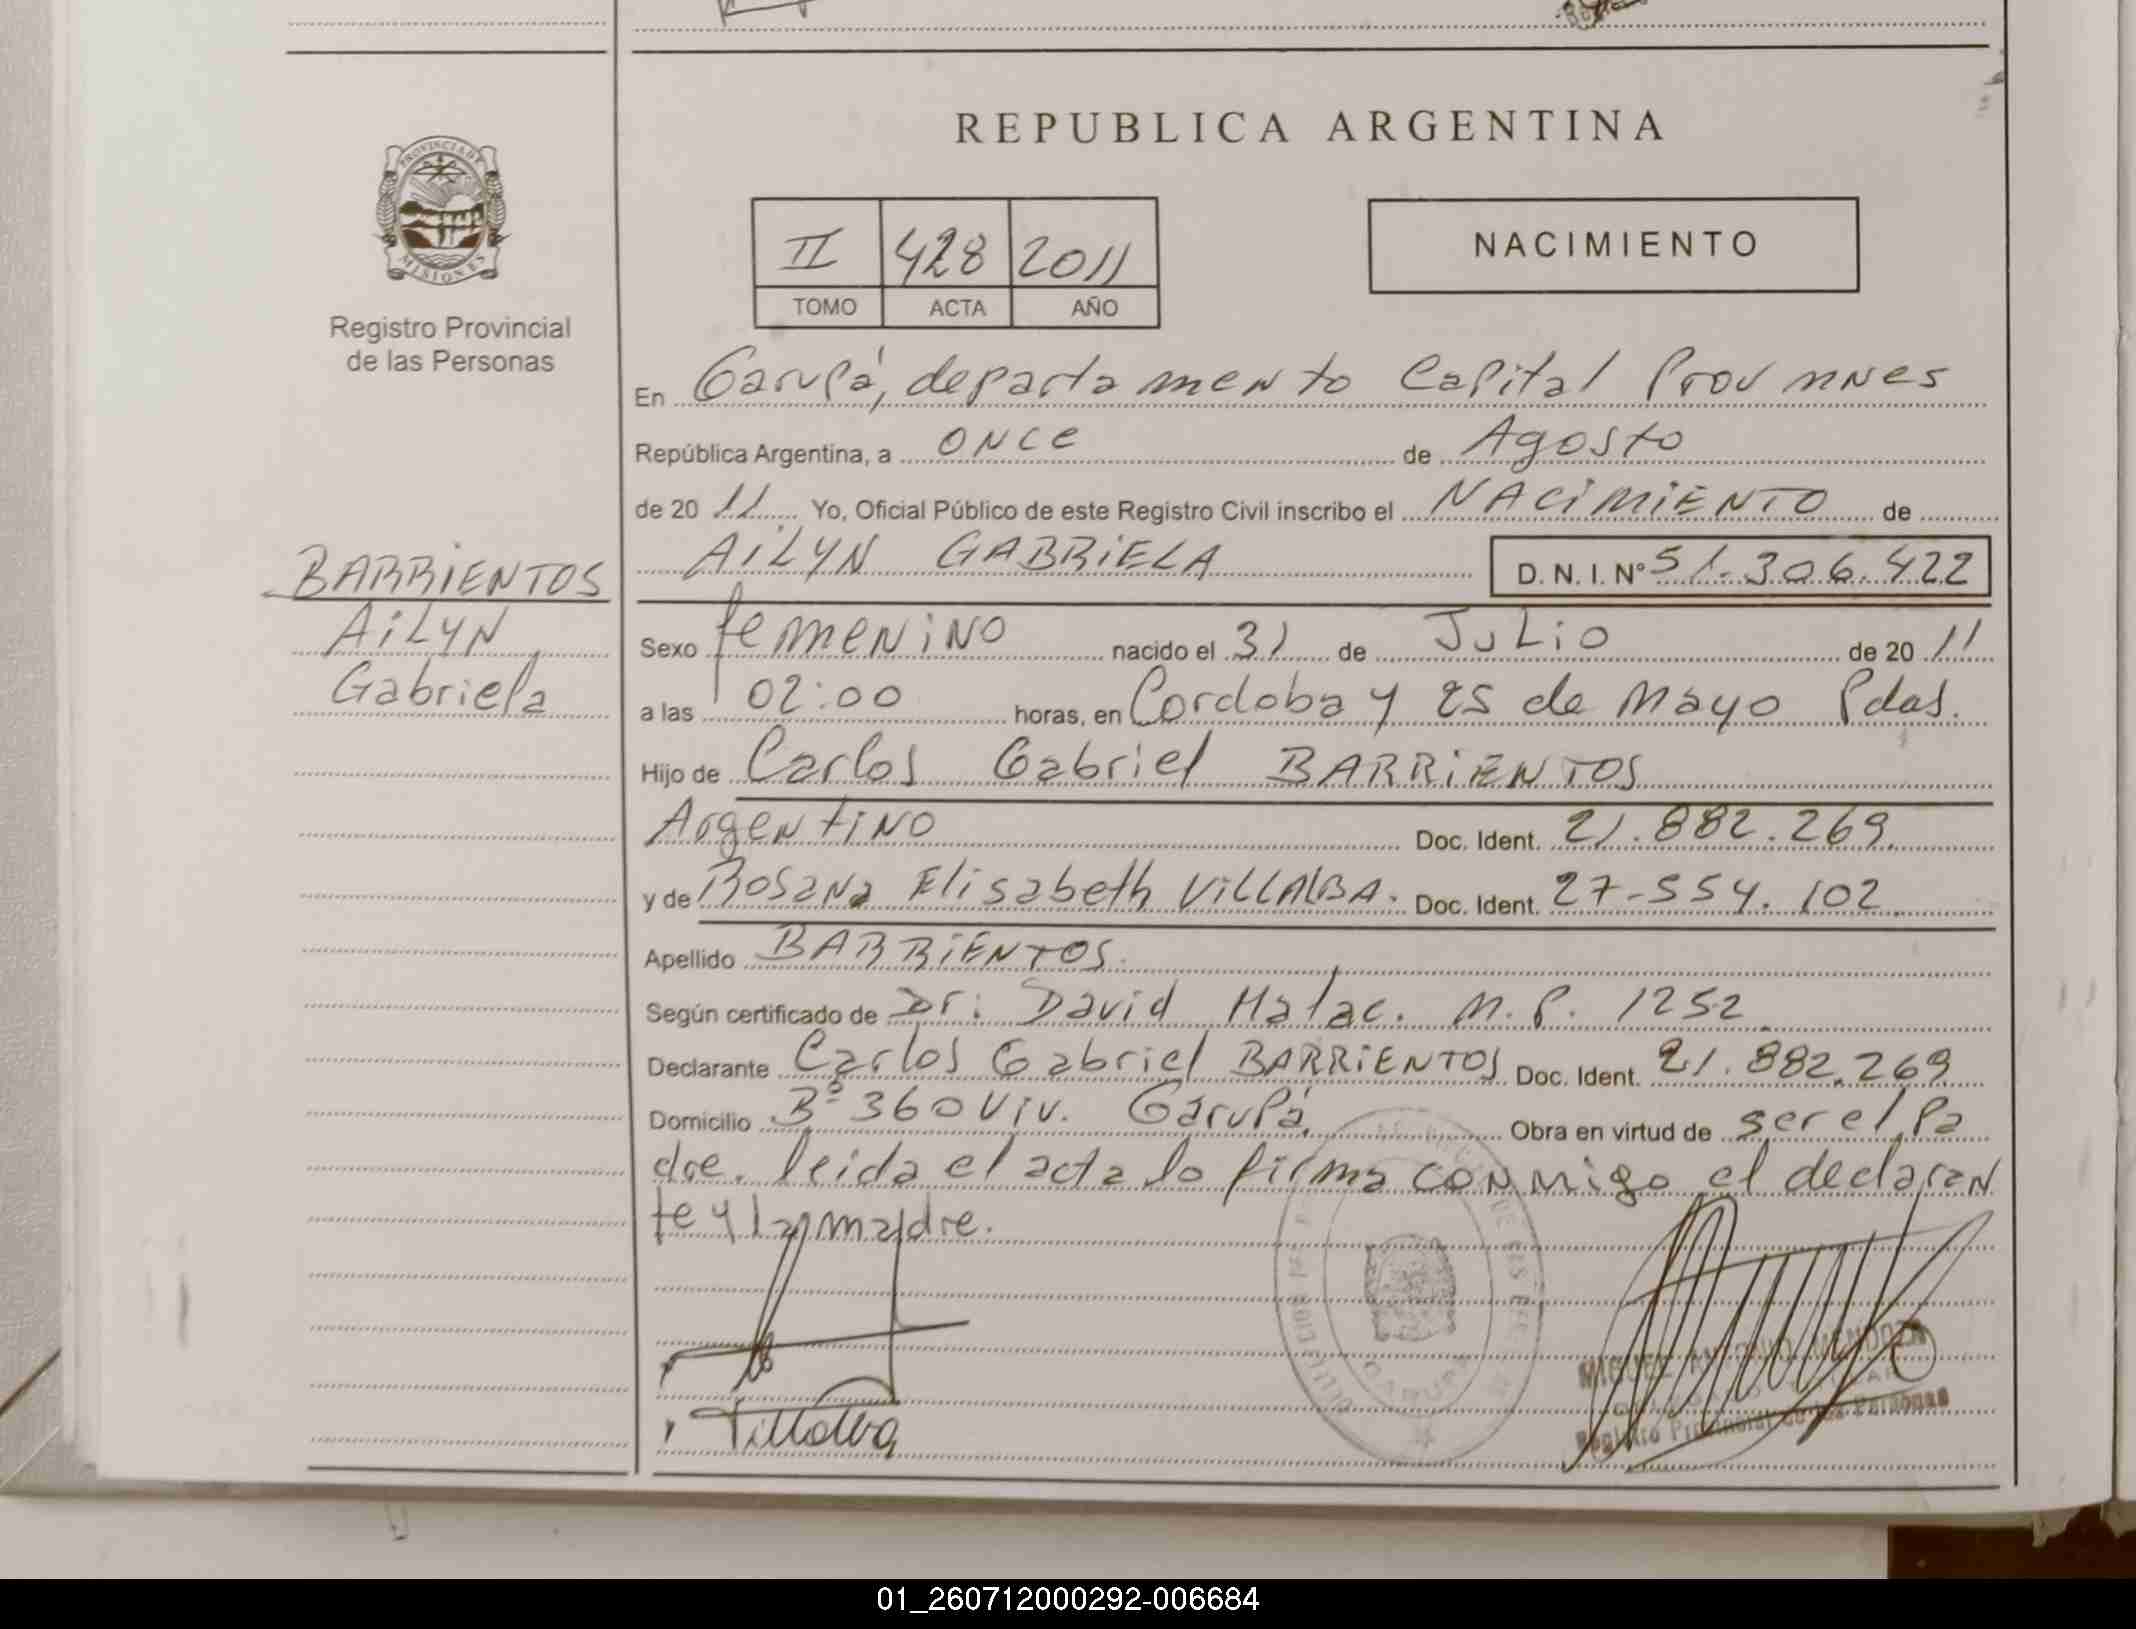 REPUBLICA ARGENTINA
PROVINCIA DE
MISIONES
Registro Provincial
de las Personas
II 428 2011
TOMO ACTA AÑO
NACIMIENTO
En Garupá, departamento Capital Prov mnes
República Argentina, a once de Agosto
de 20 11 Yo, Oficial Público de este Registro Civil inscribo el NACIMIENTO de
AiLYN GABRIELA D. N. I. Nº 51.306.422
BARRIENTOS
AiLYN
Gabriela
Sexo femenino nacido el 31 de JuLio de 20 11
a las 02:00 horas, en Cordoba y 25 de Mayo Pdas.
Hijo de Carlos Gabriel BARRIENTOS
Argentino Doc. Ident. 21.882.269.
y de Rosana Elisabeth VILLALBA. Doc. Ident. 27-554.102
Apellido BARRIENTOS.
Según certificado de Dr: David M.P. 1252
Declarante Carlos Gabriel BARRIENTOS Doc. Ident. 21.882.269
Domicilio Bº 360 Viv. Garupá. Obra en virtud de ser el Pa
dre. leida el acta lo firma conmigo el declaran
te y la madre.
Villalba
GARUPA
MIGUEL ANTONIO MENDOZA
Registro Provincial de las Personas
01_260712000292-006684